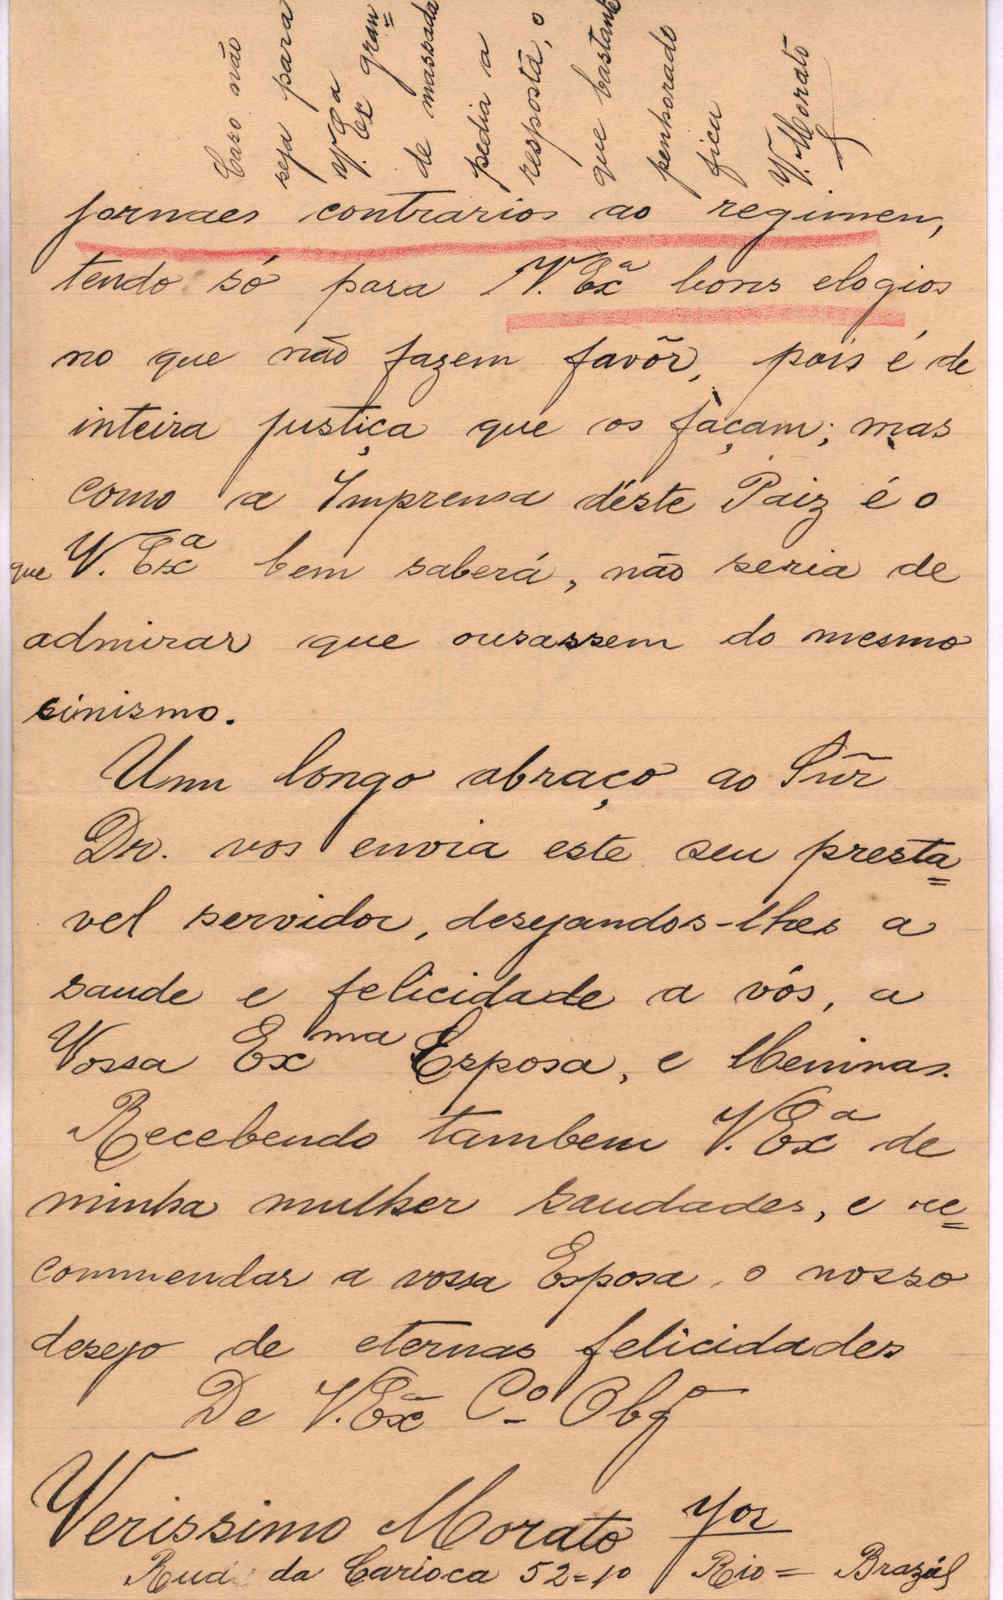 jornaes contrarios ao regimen,
tendo só para V. Exª bons elogios
no que não fazem favôr, pois é de
inteira justiça que os façam; mas
como a Imprensa déste Paiz é o
que V. Exª bem saberá, não seria de
admirar que ousassem do mesmo
sinismo.
Um longo abraço ao Snr̃
Dr. vos envia este seu presta=
vel servidor, desejandos-lhes a
saude e felicidade a vós, a
Vossa Exma Esposa, e Meninas.
Recebendo tambem V. Exª de
minha mulher saudades, e re=
commendar a vossa Esposa, o nosso
desejo de eternas felicidades
De V. Exª Cº Obgº
Verissimo Morato
Rua da Carioca 52=1º Rio = Brazil
Caso não
seja para
V. Exª gran=
de massada
pedia a
resposta, o
que bastante
penhorado
fica
V. Morato